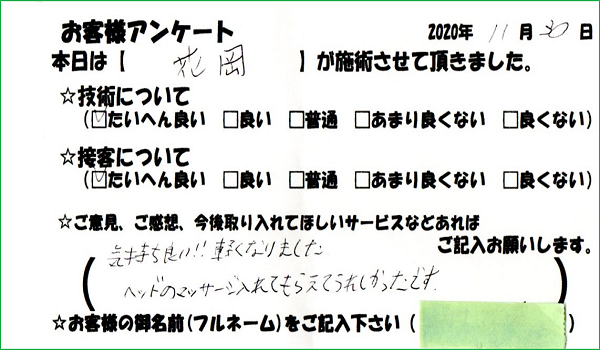 お客様アンケート 2020年 11月 30日
本日は【 花岡 】が施術させて頂きました。
☆技術について
(☑たいへん良い □良い □普通 □あまり良くない □良くない)
☆接客について
(☑たいへん良い □良い □普通 □あまり良くない □良くない)
☆ご意見、ご感想、今後取り入れてほしいサービスなどあれば
ご記入お願いします。
(気持ち良い!! 軽くなりました
ヘッドのマッサージ入れてもらえてうれしかったです。)
☆お客様の御名前(フルネーム)をご記入下さい( )